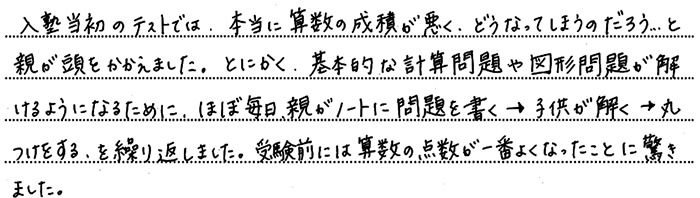 入塾当初のテストでは、本当に算数の成積が悪く、どうなってしまうのだろう…と
親が頭をかかえました。とにかく、基本的な計算問題や図形問題が解
けるようになるために、ほぼ毎日、親がノートに問題を書く→子供が解く→丸
つけをする、を繰り返しました。受験前には算数の点数が一番よくなったことに驚き
ました。